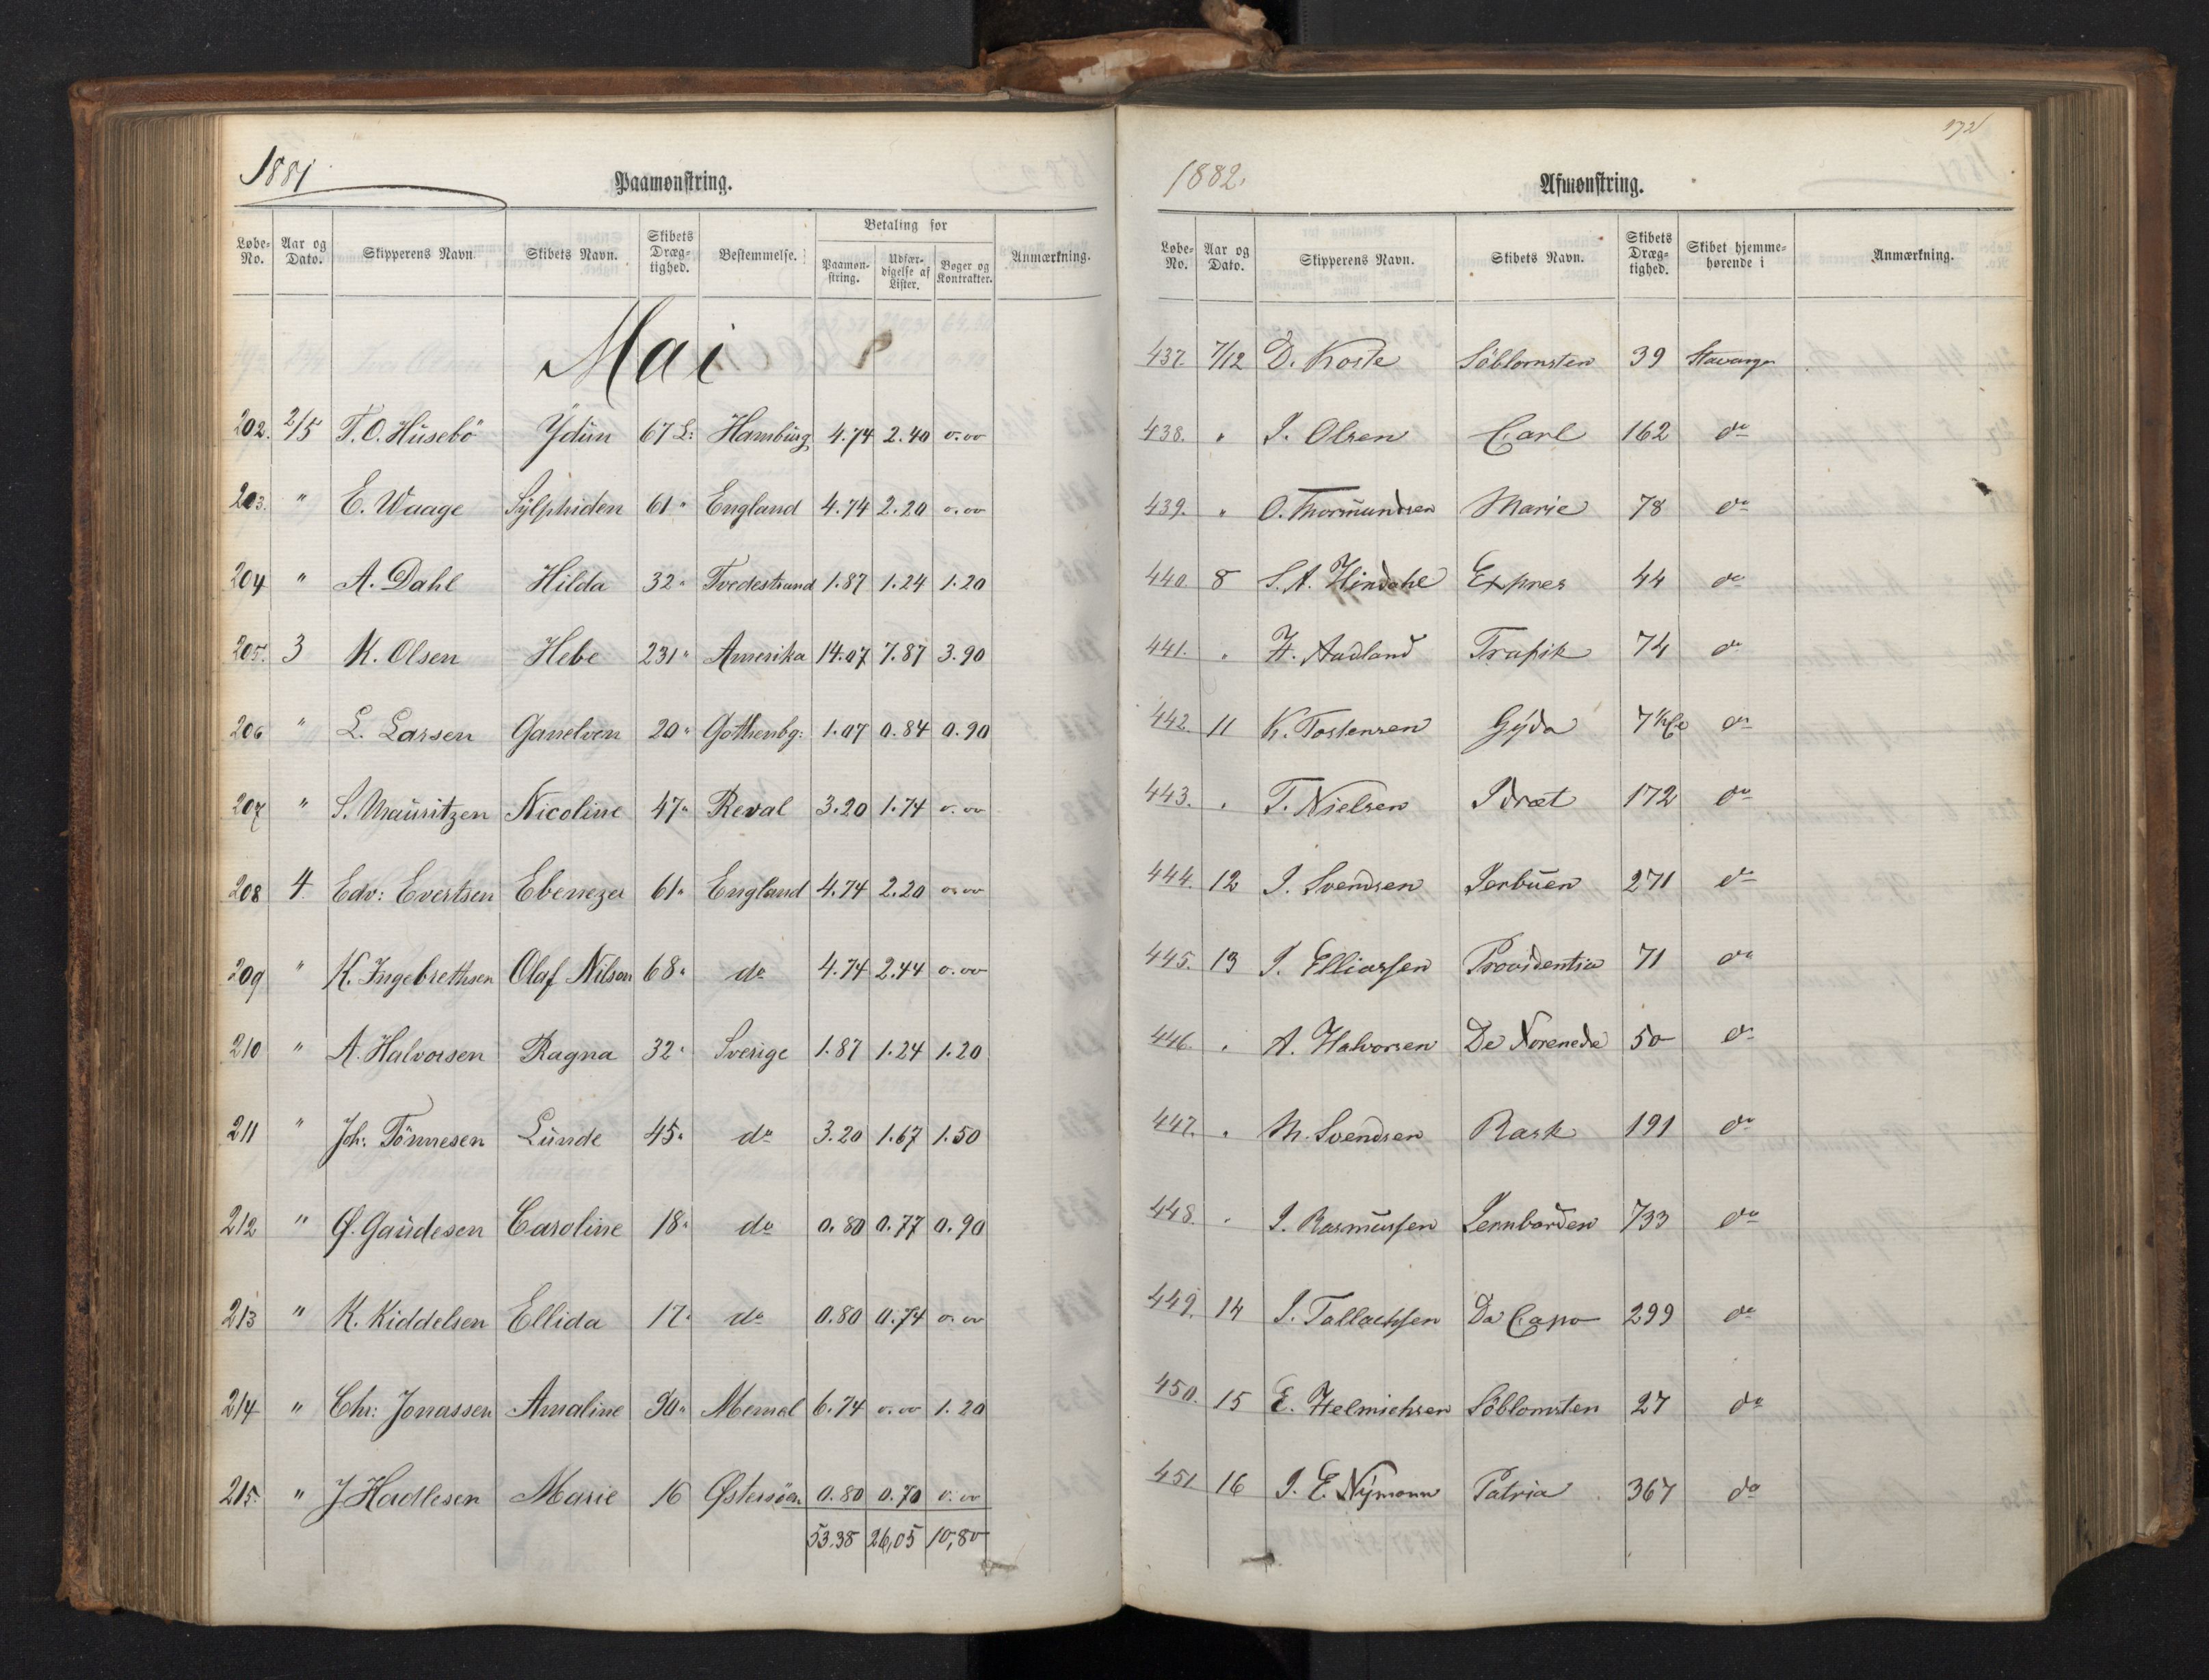 1881
Paamønstring.
Løbe-No. Aar og Dato. Skipperens Navn. Skibets Navn. Skibets Dræg-tighed. Bestemmelse. Betaling for Paamøn-string. Udfær-digelse af Lister. Bøger og Kontrakter. Anmærkning.
Mai
202. 2/5 T. O. Husebö Ydun 67 L: Hamburg 4.74 2.40 0.00
203. " E. Waage Sylphiden 61 " England 4.74 2.20 0.00
204 " A. Dahl Hilda 32 " Tvedestrand 1.87 1.24 1.20
205. 3 K. Olsen Hebe 231 " Amerika 14.07 7.87 3.90
206 " L. Larsen Ganelven 20 " Gothenbg: 1.07 0.84 0.90
207 " S. Mauritzen Nicoline 47 " Reval 3.20 1.74 0.00
208 4. Edv: Evertsen Ebenezer 61 " England 4.74 2.20 0.00
209 " K. Ingebrethsen Olaf Nilson 68 " do 4.74 2.44 0.00
210 " A. Halvorsen Ragna 32 " Sverige 1.87 1.24 1.20
211 " Joh: Tönnesen Lunde 45 " do 3.20 1.67 1.50
212 " G. Gaudesen Caroline 18 " do 0.80 0.77 0.90
213 " K. Kiddelsen Ellida 17 " do 0.80 0.74 0.00
214 " Chr: Jonassen Amaline 90 " Memel 6.74 0.00 1.20
215. " J Hadlesen Marie 16 Østersöen 0.80 0.70 0.00
53.38 26,05 10,80
172
1882.
Afmønstring.
Løbe-No. Aar og Dato. Skipperens Navn. Skibets Navn. Skibets Dræg-tighed. Skibet hjemme-hørende i Anmærkning.
437. 7/12 D. Koste Söblomsten 39 Stavanger
438. " J. Olsen Carl 162 do
439. " O. Thormundsen Marie 78 do
440. 8 S. A. Hindahl Expres 44 do
441. " H. Aadland Trafik 74 do
442. 11 K. Tostensen Gyda 7 do
443. " T. Nielsen Idræt 172 do
444. 12 J. Svendsen Jerbuen 271 do
445. 13 J. Elliassen Providentia 71 do
446. " A. Halvorsen De Norenede 50 do
447. " M. Svendsen Rask 191 do
448. " J. Rasmussen Jernbarden 733 do
449. 14 J. Tallachsen Da Capo 299 do
450. 15 E. Helmichsen Söblomsten 27 do
451 16 J. E. Nymann Patria 367 do